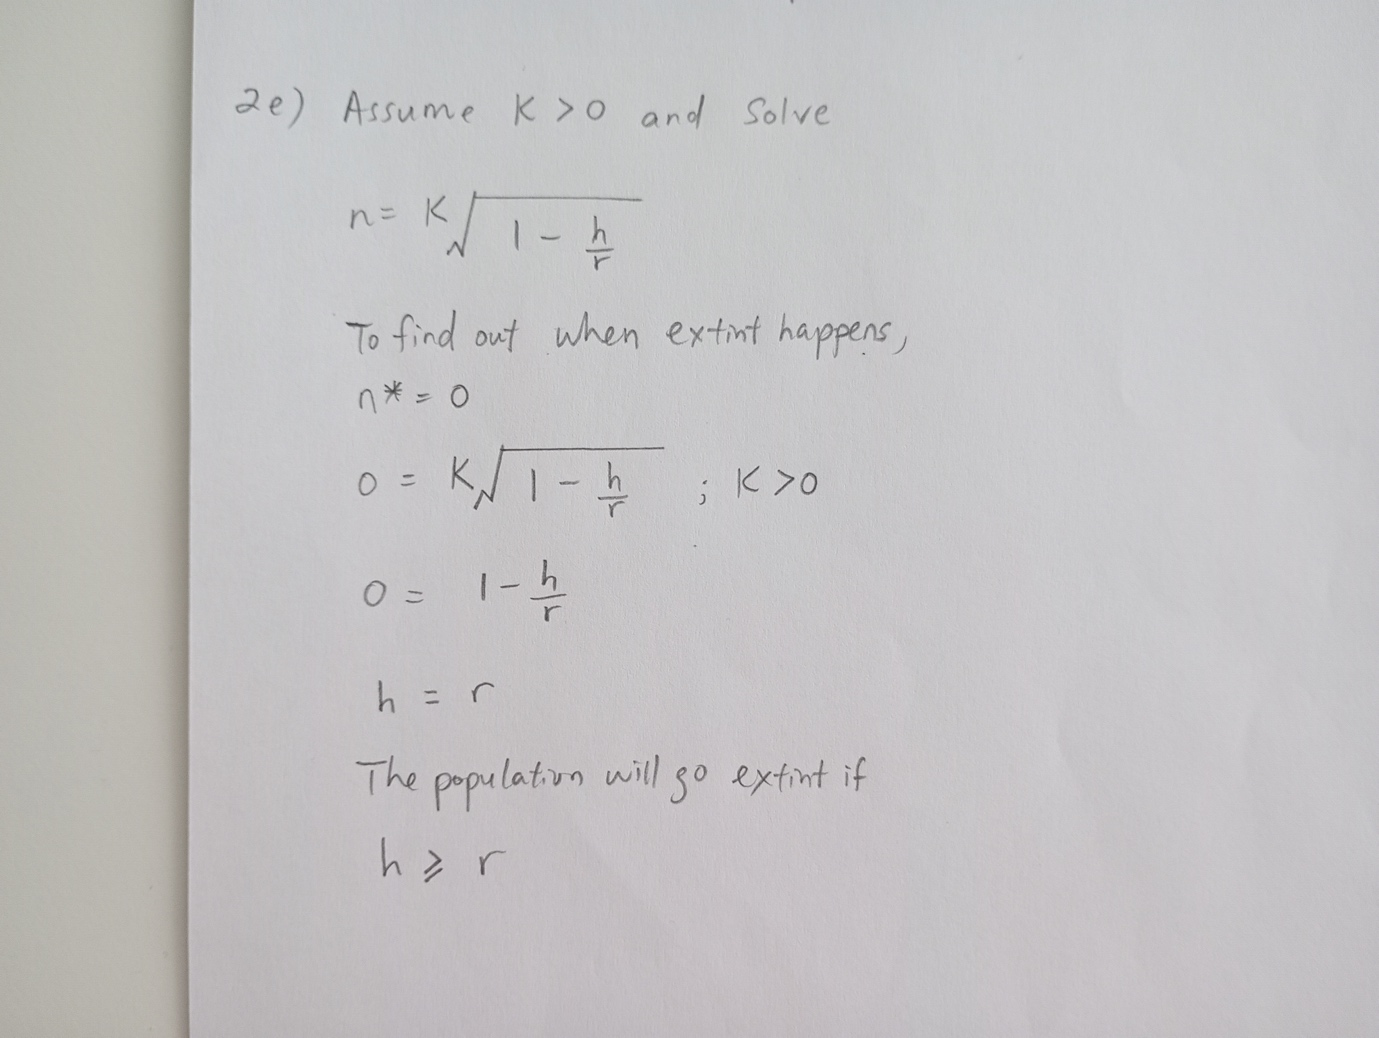 2e) Assume K > 0 and Solve
n = K√(1 - h/r)
To find out when extint happens,
n* = 0
0 = K√(1 - h/r) ; K > 0
0 = 1 - h/r
h = r
The population will go extint if
h ⩾ r